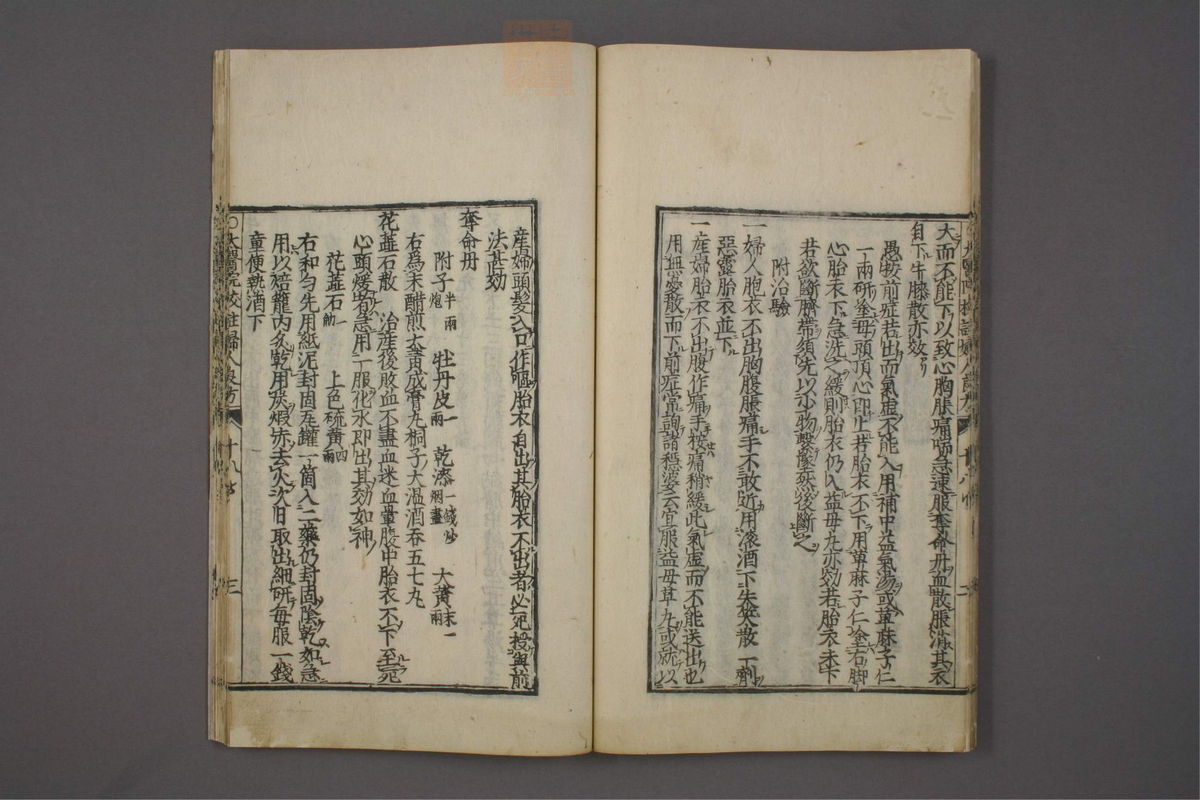 大而不能下以致心胸脹痛喘急速服奪命丹血散脹消其衣
自下牛膝散亦效
愚按前症若出而氣虛不能入用補中益氣湯或草麻子仁
一兩研塗母頭頂心即止若胎衣不下用萆麻子仁塗右脚
心胎衣下急洗之緩則胎衣仍入益母丸亦効若胎衣未下
若欲斷臍帶須先以少物繫墜然後斷之
附治驗
一婦人胞衣不出胸腹脹痛手不敢近用滚酒下失笑散一劑
惡露胎衣並下
一産婦胎衣不出腹作痛手按痛稍緩此氣虛而不能送出也
用無憂散而下前症常詢諸穏婆云宜服益母草丸或就以
産婦頭髮入口作嘔胎衣自出其胎衣不出者必死授與前
法甚効
奪命丹
附子半兩炮 牡丹皮一兩 乾漆一錢炒烟盡 大黄末一兩
右爲末醋煎大黄成膏丸桐子大温酒呑五七丸
花蕋石散 治産後敗血不盡血迷血暈腹中胎衣不下至死
心頭煖者急用一服化水即出其効如神
花蕋石一觔 上色硫黄四兩
右和匀先用紙泥封固瓦罐一箇入二藥仍封固陰乾如急
用以焙籠内炙乾用炭煅赤去火次日取出細研每服一錢
童便熱酒下
○太醫院校註婦人良方 十八 三